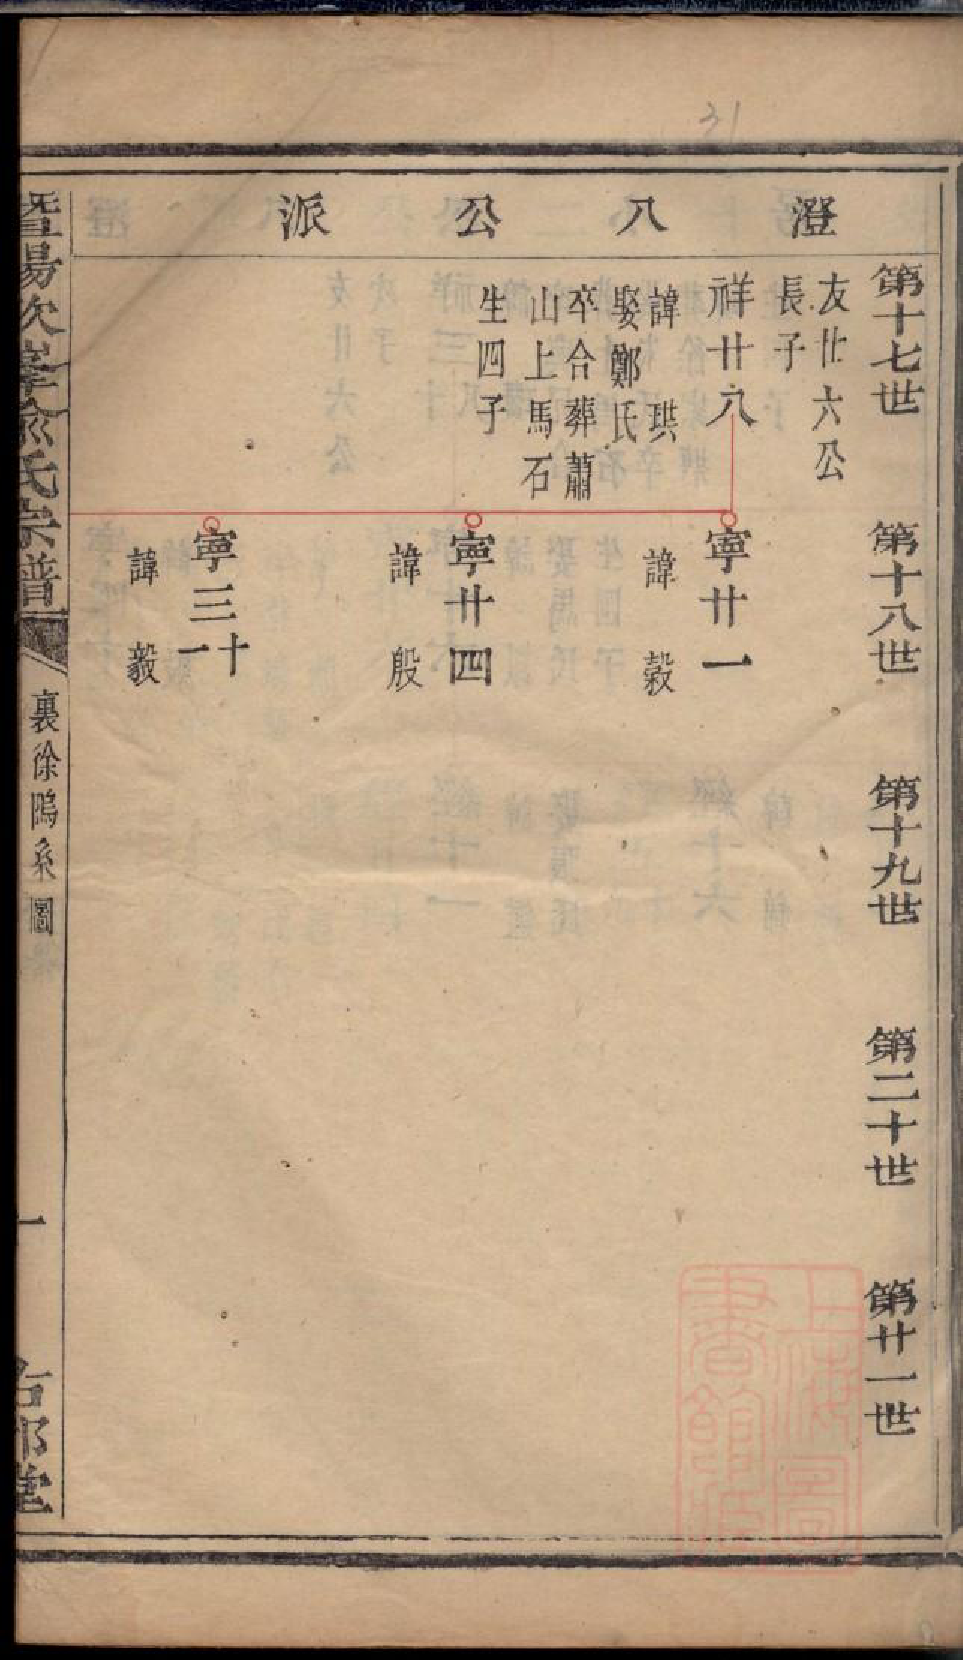 31
澄八公派
第十七世
第十八世
第十九世
第二十世
第廿一世
友廿六公
長子
祥廿八
諱珙
娶鄭氏
卒合葬蕭
山上馬石
生四子
寧廿一
諱穀
寧廿四
諱殷
寧三十一
諱毅
暨陽次峯俞氏宗譜
裏徐隖系圖
一
右邨堂
上海圖書館藏